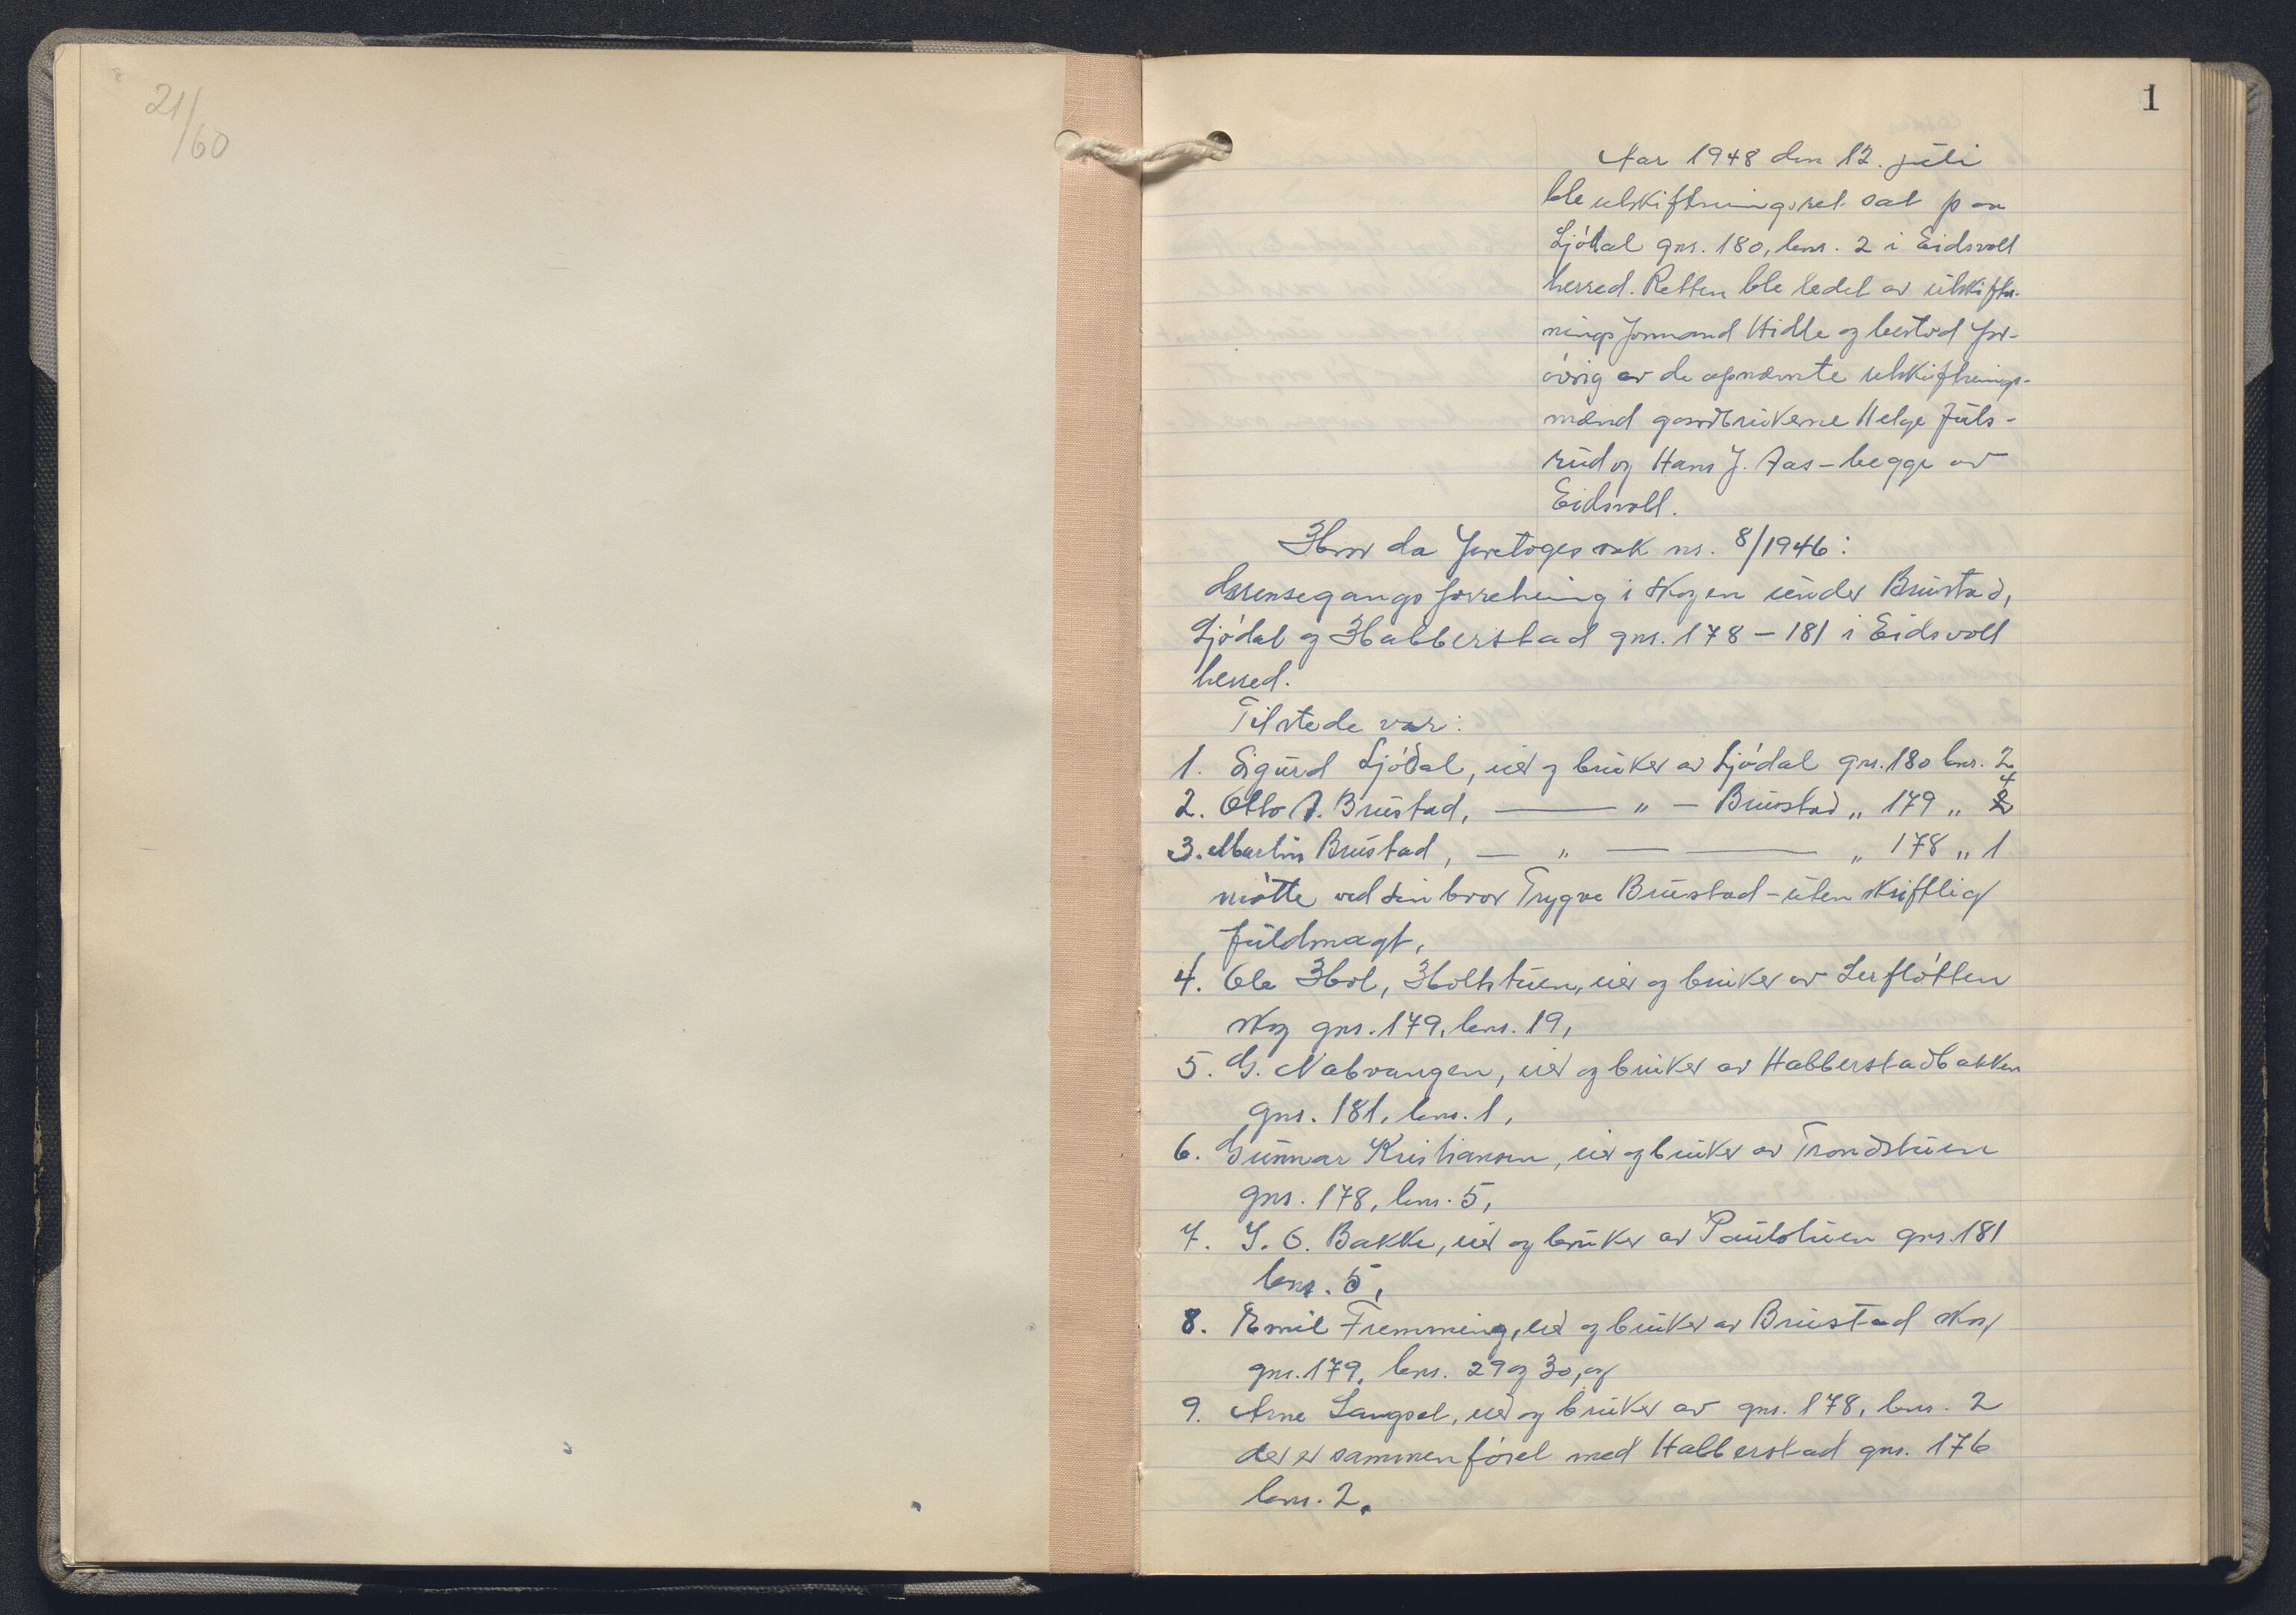 21/60
1
Aar 1948 den 12. juli
ble utskiftningsret sat paa
Ljødal gnr. 180, bnr. 2 i Eidsvoll
herred. Retten ble ledet av utskift-
ningsformand Hidle og bestod for-
øvrig av de opnævnte utskiftnings-
mænd gaardbrukerne Helge Juls-
rud og Hans J. Aas - begge av
Eidsvoll.
Hvor da foretoges sak nr. 8/1946:
Grensegangsforretning i skogen under Brustad,
Ljødal og Habberstad gnr. 178 - 181 i Eidsvoll
herred.
Tilstede var:
1. Sigurd Ljødal, eier og bruker av Ljødal gnr. 180 bnr. 2
2. Otto A. Brustad, — " — Brustad „ 179 „ 4
3. Martin Brustad, — " — — „ 178 „ 1
møtte ved sin bror Trygve Brustad - uten skriftlig
fuldmagt,
4. Ole Hol, Holtstuen, eier og bruker av Lerfløtten
skog gnr. 179, bnr. 19,
5. G. Nabvangen, eier og bruker av Habberstadbakken
gnr. 181, bnr. 1,
6. Gunnar Kristiansen, eier og bruker av Trondstuen
gnr. 178, bnr. 5,
7. J. O. Bakke, eier og bruker av Paulstuen gnr. 181
bnr. 5,
8. Emil Fremming, eier og bruker av Brustad skog
gnr. 179, bnr. 29 og 30, og
9. Arne Langset, eier og bruker av gnr. 178, bnr. 2
der er sammenføiet med Habberstad gnr. 176
bnr. 2.